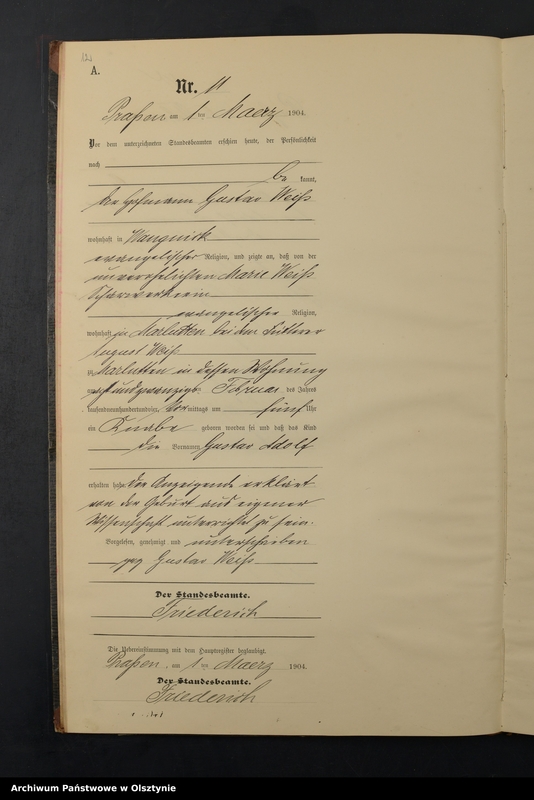 A.
Nr. 11
Praßen am 1 ten Maerz 1904.
Vor dem unterzeichneten Standesbeamten erschien heute, der Persönlichkeit
nach
be kannt,
der Hofmann Gustav Weiß
wohnhaft in Wangnick
evangelischer Religion, und zeigte an, daß von der
unverehelichten Marie Weiß
Scharwerkerin
evangelischer Religion,
wohnhaft in Marlutten bei dem Fütterer
August Weiß
zu Marlutten in dessen Wohnung
am Februar des Jahres
tausendneunhundertundvier, Vor mittags um fünf Uhr
ein Knabe geboren worden sei und daß das Kind
die Vornamen Gustav Adolf
erhalten habe. Der Anzeigende erklärt
von der Geburt aus eigener
Wissenschaft unterrichtet zu sein.
Vorgelesen, genehmigt und unterschrieben
gez Gustav Weiß
Der Standesbeamte.
Friederich
Die Uebereinstimmung mit dem Hauptregister beglaubigt.
Praßen, am 1 ten Maerz 1904.
Der Standesbeamte.
Friederich
Archiwum Państwowe w Olsztynie